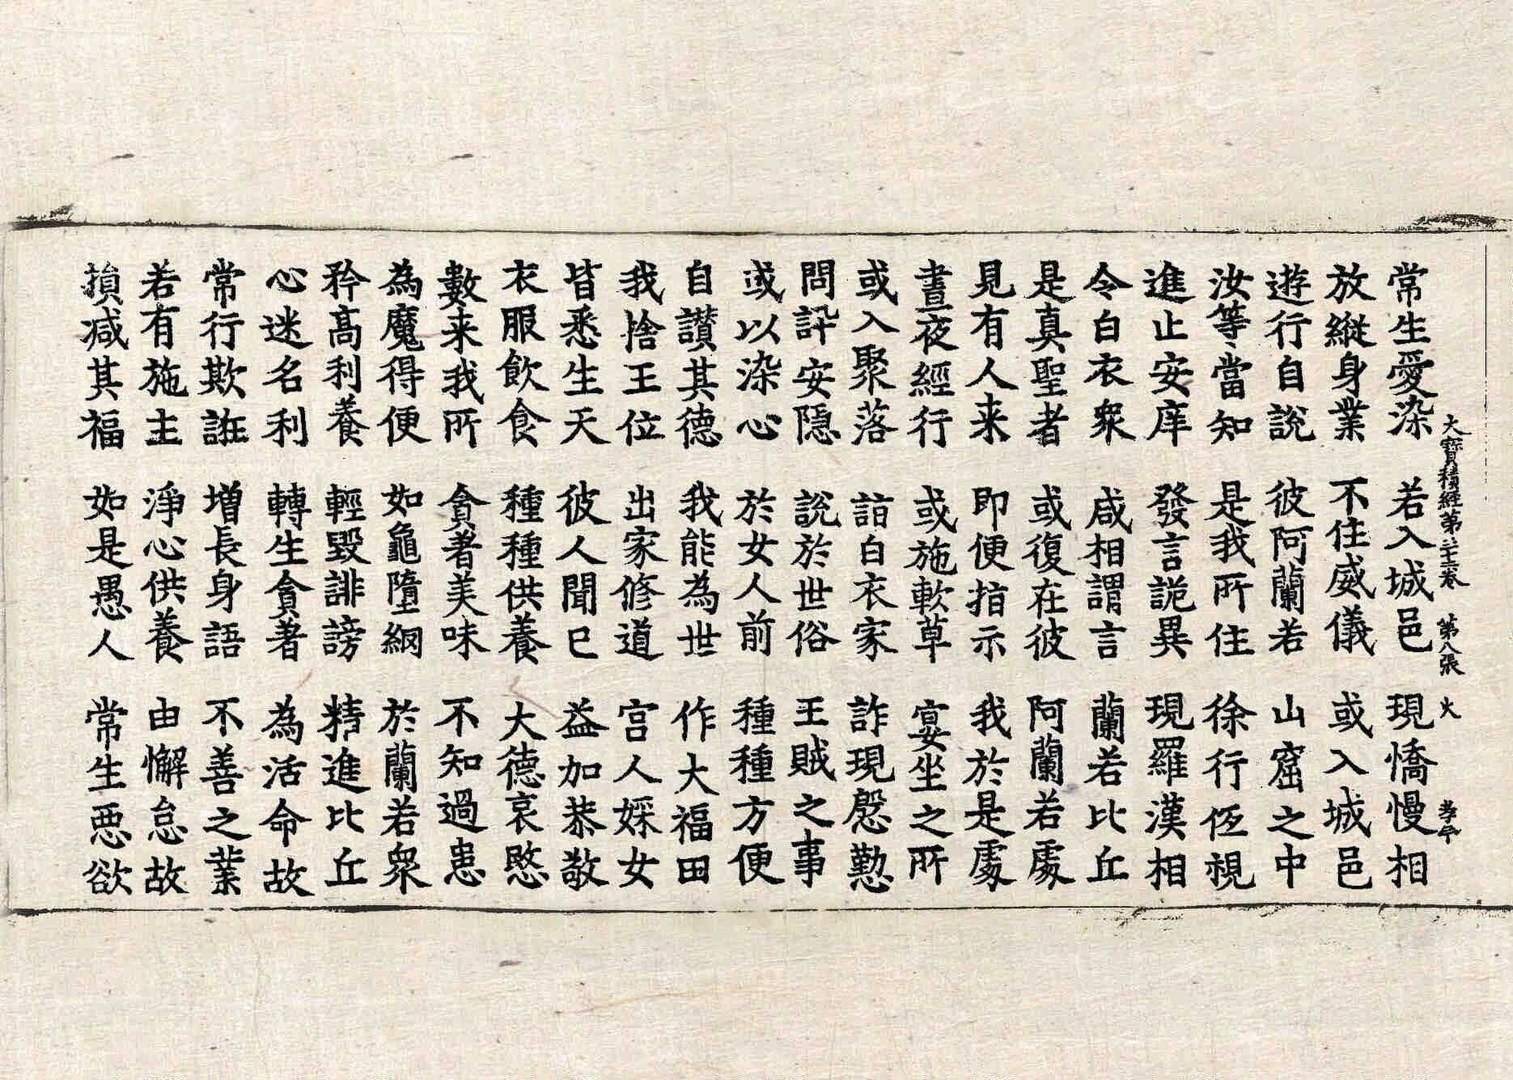 大寳積經第三十三卷 第八張 火
常生愛染 若入城邑 現憍慢相
放縱身業 不住威儀 或入城邑
遊行自說 彼阿蘭若 山窟之中
汝等當知 是我所住 徐行伍視
進止安庠 發言詭異 現羅漢相
令白衣衆 咸相謂言 蘭若比丘
是真聖者 或復在彼 阿蘭若處
見有人来 即便指示 我於是處
晝夜經行 或施軟草 宴坐之所
或入聚落 詣白衣家 詐現慇懃
問訊安隱 說於世俗 王賊之事
或以染心 於女人前 種種方便
自讃其德 我能為世 作大福田
我捨王位 出家修道 宫人婇女
皆悉生天 彼人聞已 益加恭敬
衣服飲食 種種供養 大德哀愍
數来我所 貪著美味 不知過患
為魔得便 如龜墮網 於蘭若衆
矜高利養 輕毀誹謗 精進比丘
心迷名利 轉生貪著 為活命故
常行欺誑 增長身語 不善之業
若有施主 淨心供養 由懈怠故
損减其福 如是愚人 常生惡欲